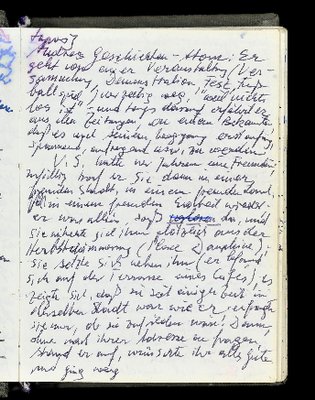 Andreas Geschichten - Storie: Er
geht von einer Veranstaltung (Ver-
sammlung, Demonstration, Fest, Fuß-
ballspiel) vorzeitig weg, "weil nichts
los ist" - und tags darauf erfährt er
aus den Zeitungen, von einem Bekannten,
daß es nach seinem Weggang erst anfing,
spannend, aufregend usw. zu werden
V. S. hatte vor Jahren eine Freundin,
zufällig traf er Sie dann in einer
fremden Stadt, in einem fremden Land
in einem fremden Erdteil wieder:
er war allein, saß da, und
sie näherte sich ihm plötzlich aus der
Herbstdämmerung (Place Dauphine);
sie setzte sich neben ihn (er befand
sich auf der Terrasse eines Cafés), es
zeigte sich, daß sie seit einiger Zeit in
derselben Stadt war wie er, er fragte
sie nur, ob sie zufrieden wäre. Dann,
ohne nach ihrer Adresse zu fragen,
stand er auf, wünschte ihr alles Gute
und ging weg